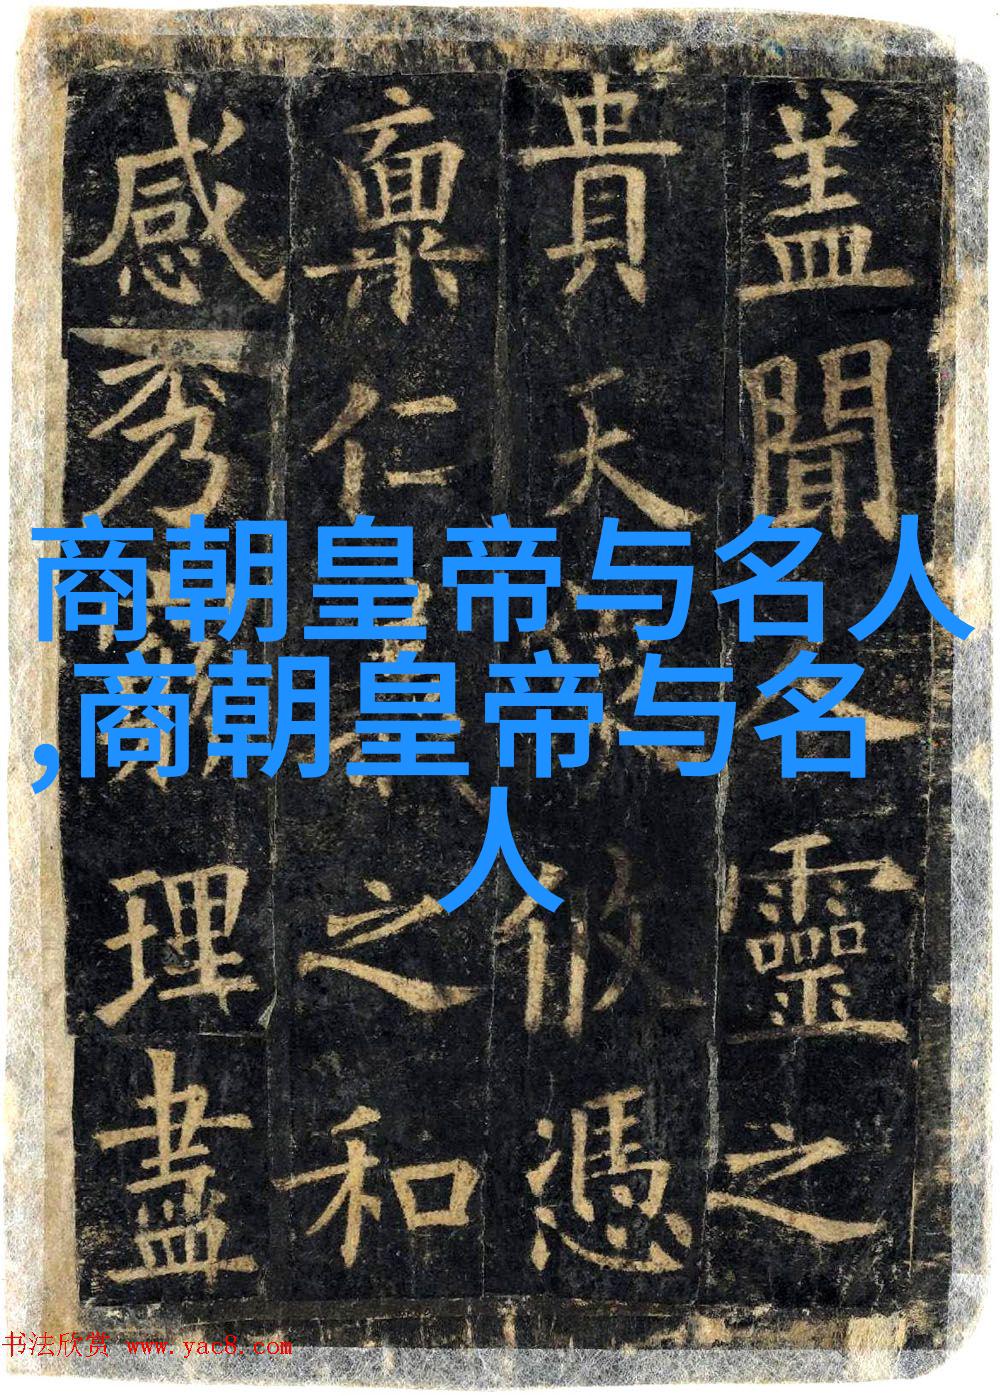 盖聞靈之
貴天攸憑
稟仁之和
感秀理盡
商朝皇帝与名人
,商朝皇帝与名
人
书法欣赏 www.yac8.com